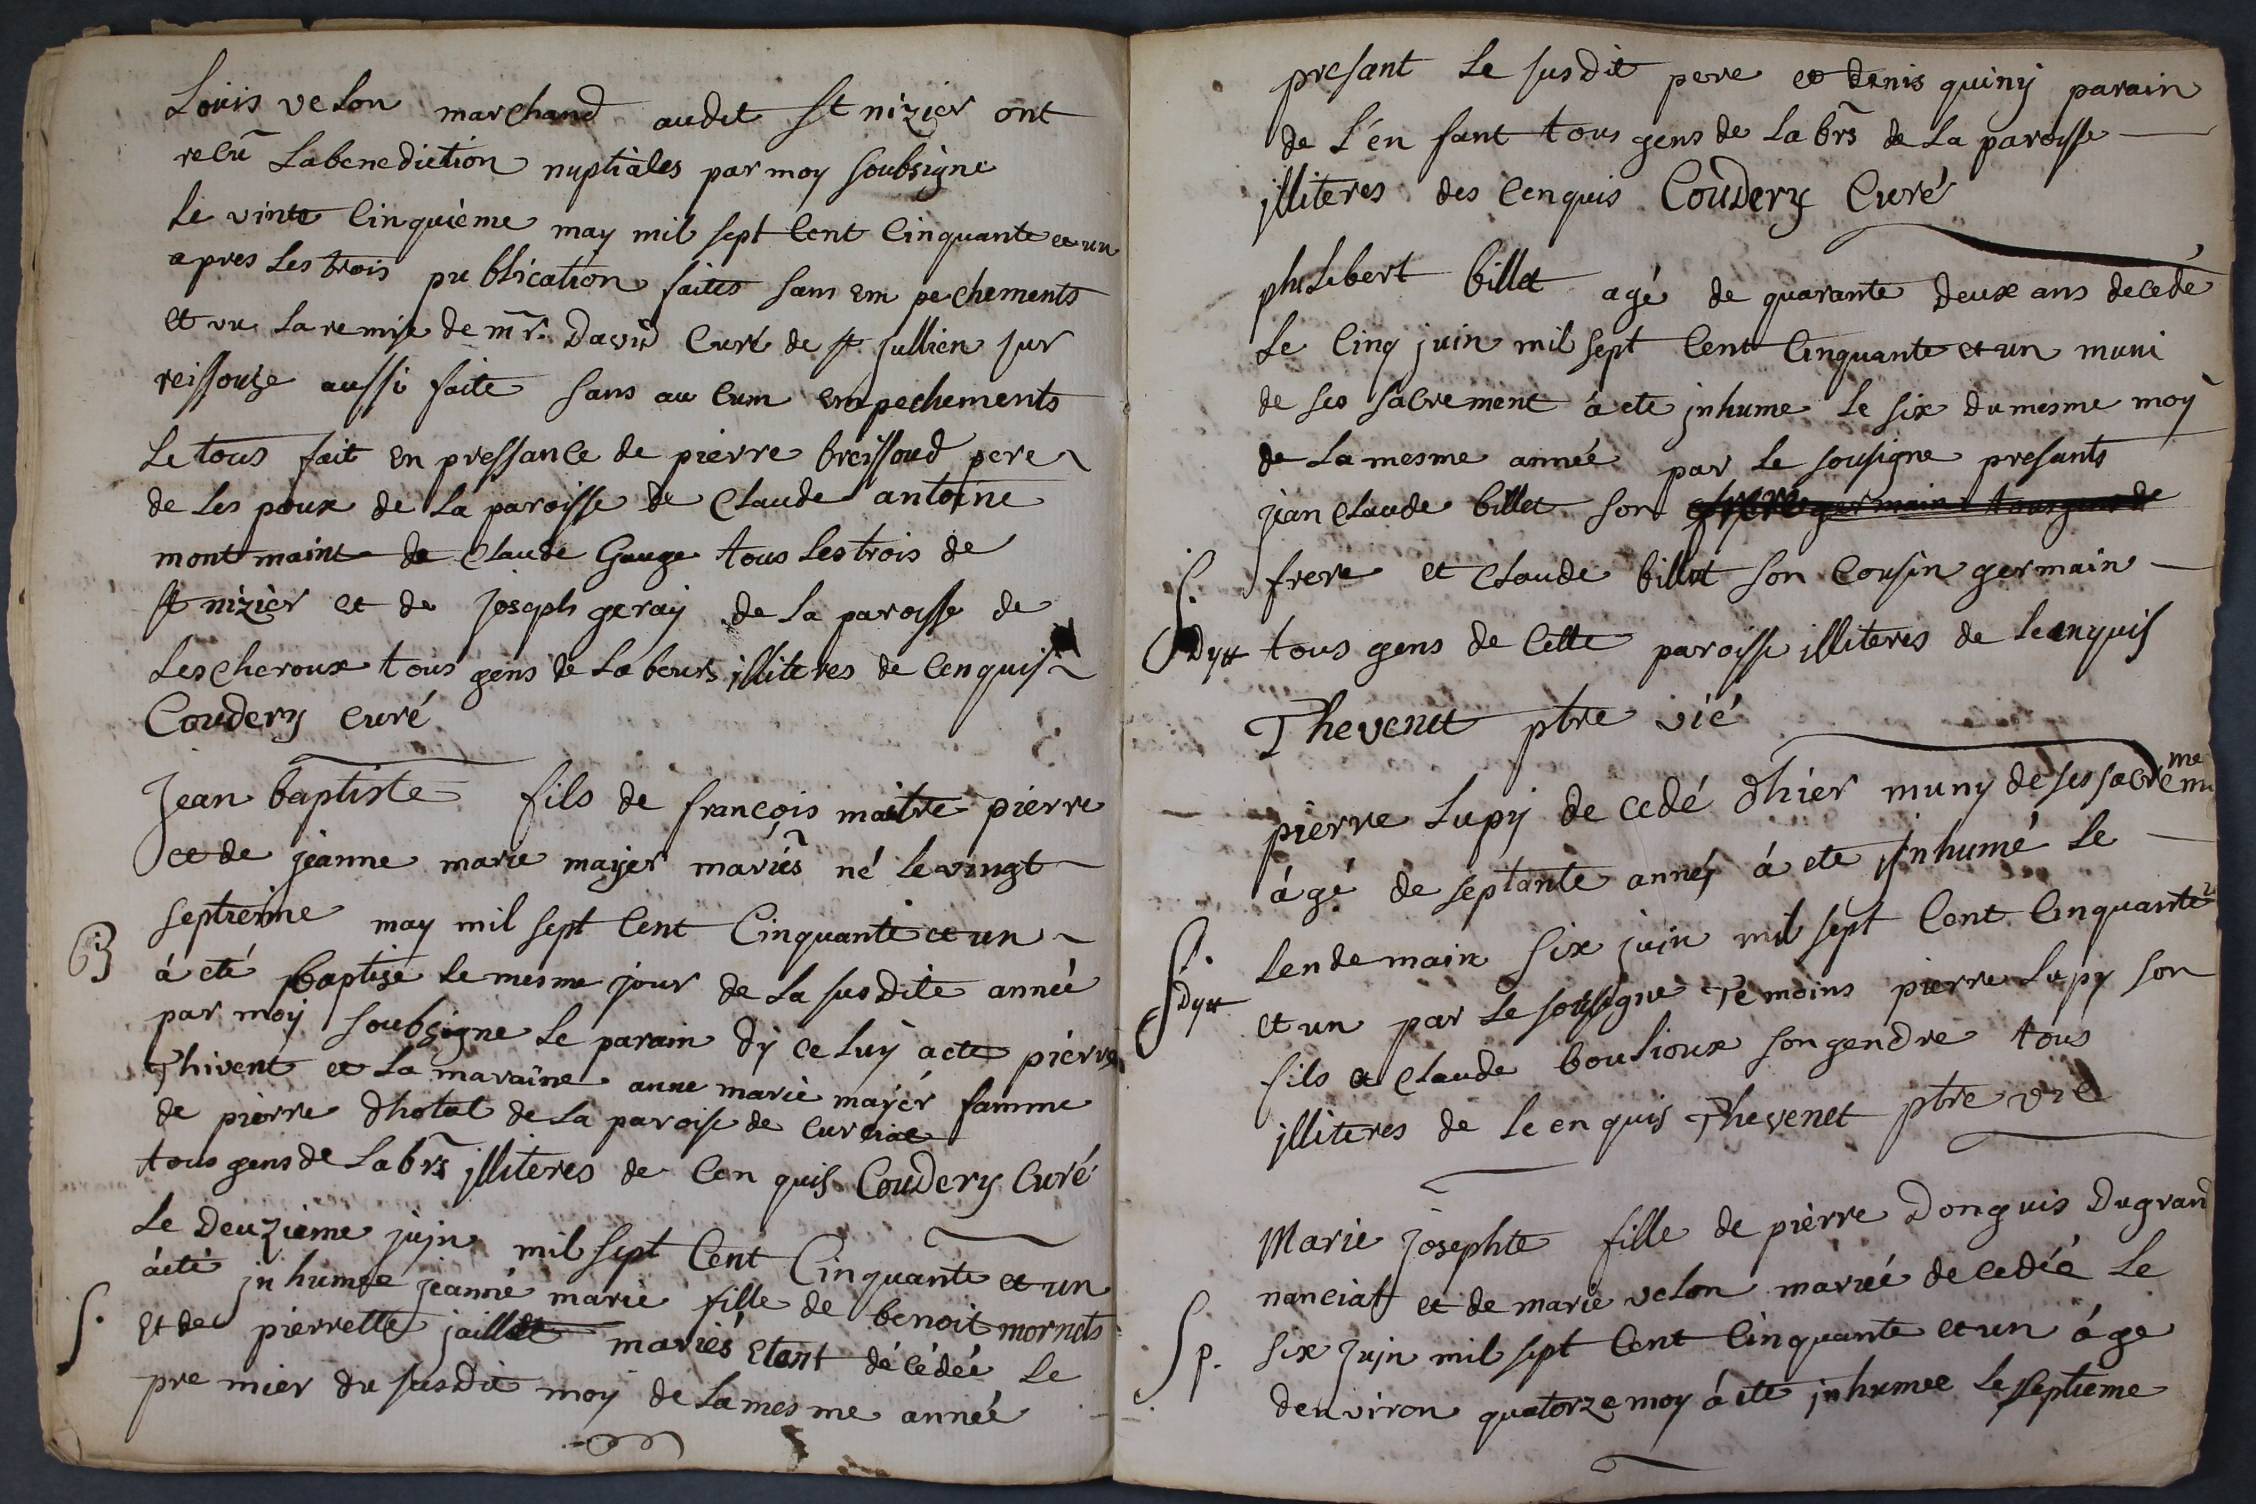 Louis velon marchand audit st nizier ont
recu labenediction nuptiales par moy soubsigne
le vint cinquième may mil sept cent cinquante et un
apres les trois publication faites sans em pechements
et vu la remise de mr. David curé de st jullien sur
reissouze aussi faite sans au cum empechements
le tous fait en pressance de pierre breissoud pere
de les poux de la paroisse de claude antoine
montmaint de claude Gauge tous les trois de
st nizier et de joseph geray de la paroisse de
lescheroux tous gens de labeurs illiteres de cenquis
Coudery curé
Jean baptiste fils de françois maitre pierre
et de jeanne marie mayer mariés né le vingt
septieme may mil sept cent Cinquante et un
B
á eté baptise le mesme jour de la susdite année
par moy soubsigne le parain dy ce luy acte pierre
Thivent et la maraine anne marie mayér famme
de pierre dhotal de la paroise de curciat
tous gens de labrs illiteres de cen quis Coudery Curé
le deuzieme juin mil sept Cent Cinquante et un
áeté inhumée jeanne marie fille de benoit mornets
S.
et de pierrette jaillet mariés etant décédée le
premier du susdit moy de lamesme année
presant le susdit pere et denis quiny parain
de l'en fant tous gens de labrs de la paroisse
illiteres des cenquis Coudery Curé
philibert billet agé de quarante deux ans decedé
le cinq juin mil sept cent cinquante et un muni
de ses sacrement á ete inhume le six du mesme moy
de la mesme année par le sousigne presants
jean claude billet son frere germain tous gens de
S. frere et claude billet son cousin germain
Dytt tous gens de cette paroisse illiteres de lenquis
Thevenet ptre vié
pierre lupy de cedé dhier muny de ses sacrement
ágé de septante anneś á ete inhumé le
S. lendemain six juin mil sept cent cinquante
Dytt et un par le sousigne Temoins pierre lupy son
fils et claude boulioux son gendre tous
illiteres de leenquis Thevenet ptre vie
Marie josephte fille de pierre Donguis Dugrand
nanciat et de marie velon mariés decedée le
Sp. six juin mil sept cent cinquante et un áge
denviron quatorze moy á ete inhumee le septieme